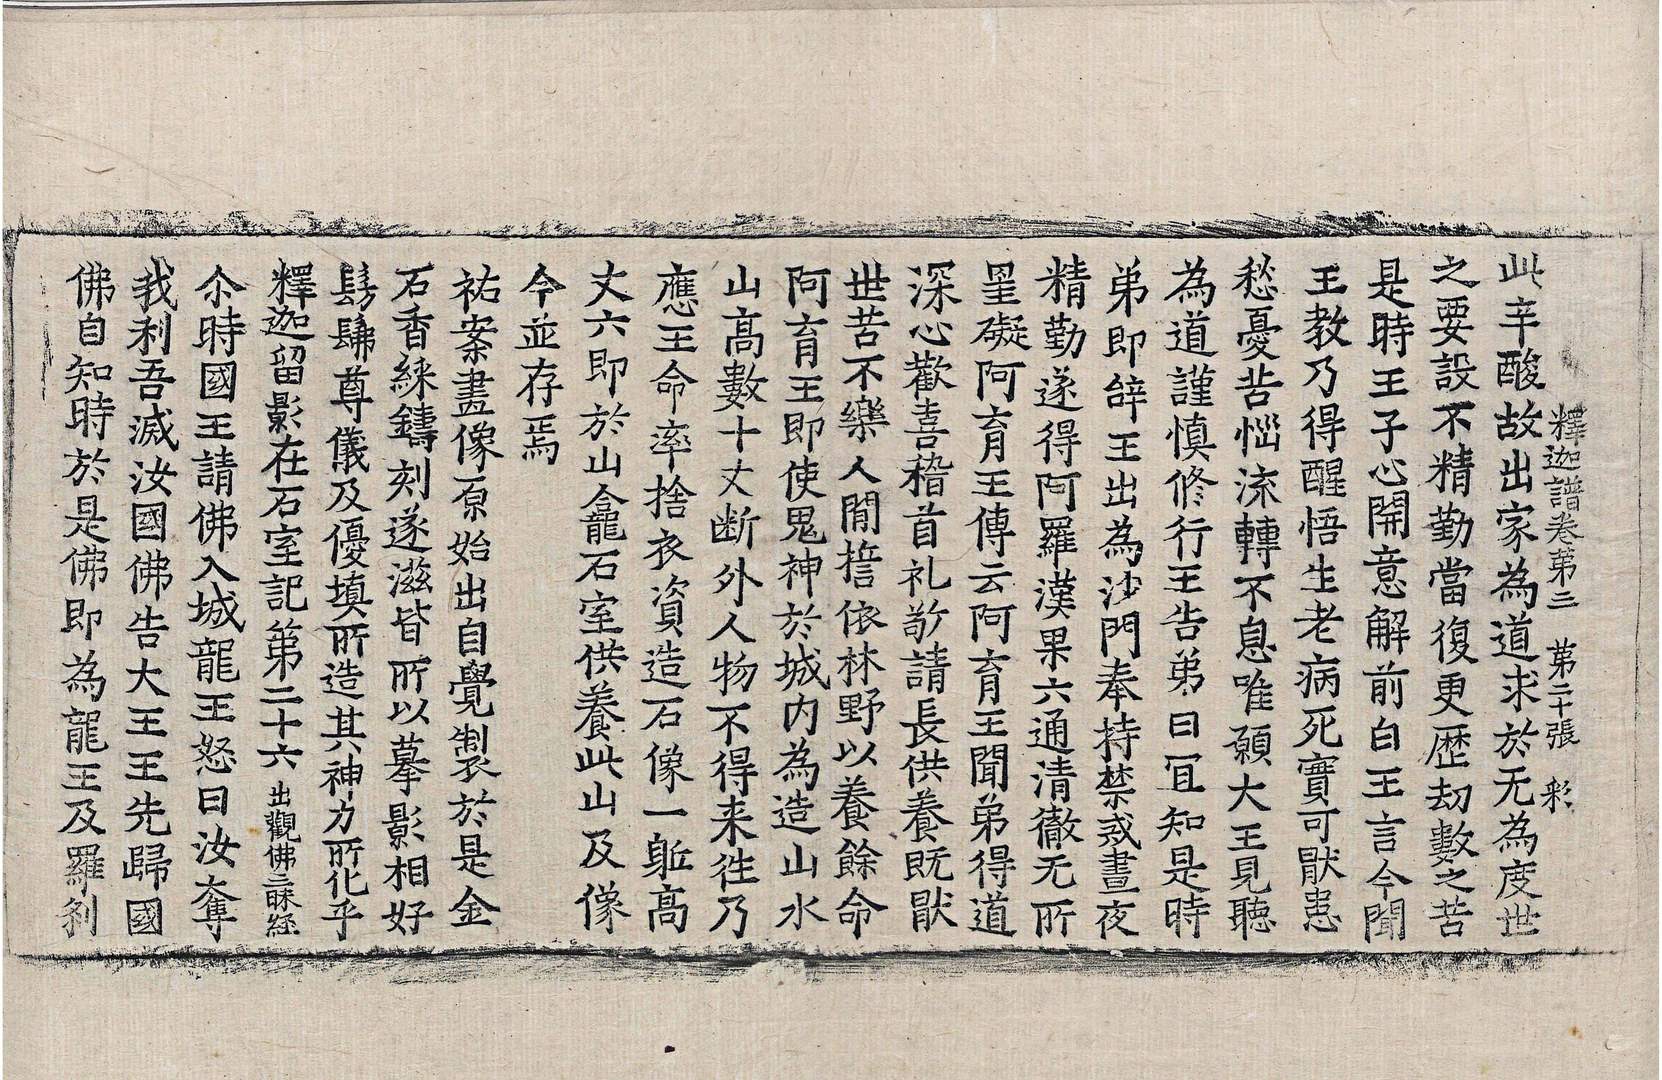 釋迦譜卷第三 第二十張 彩
此辛酸故出家為道求於无為度世
之要設不精勤當復更歷劫數之苦
是時王子心開意解前白王言今聞
王教乃得醒悟生老病死實可猒患
愁憂苦惱流轉不息唯願大王見聽
為道謹慎修行王告弟曰冝知是時
弟即辝王出為沙門奉持禁戒晝夜
精勤遂得阿羅漢果六通清徹无所
罣礙阿育王傳云阿育王聞弟得道
深心歡喜稽首礼敬請長供養既猒
世苦不樂人閒誓依林野以養餘命
阿育王即使鬼神於城内為造山水
山高數十丈断外人物不得来往乃
應王命率捨衣資造石像一軀高
丈六即於山龕石室供養此山及像
今並存焉
祐案畫像原始出自覺製於是金
石香綵鑄刻遂滋皆所以摹影相好
髣髴尊儀及優填所造其神力所化乎
釋迦留影在石室記第二十六 出觀佛三昧経
尒時國王請佛入城龍王怒曰汝奪
我利吾滅汝國佛告大王王先歸國
佛自知時於是佛即為龍王及羅剎